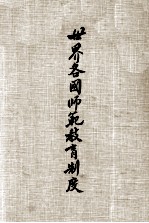 世界各國師範教育制度